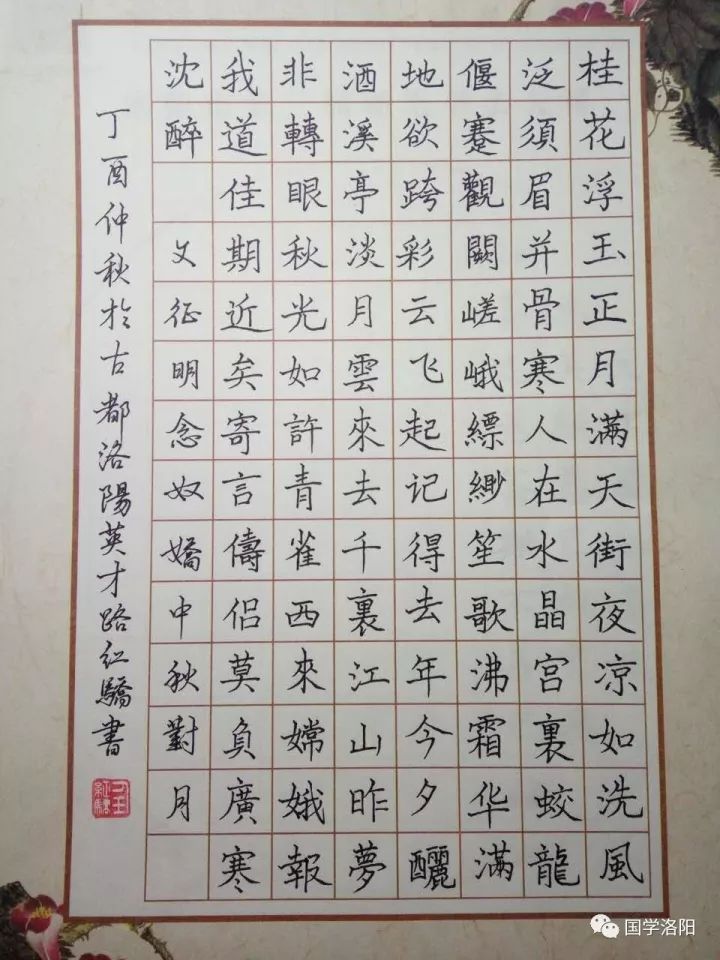 桂花浮玉正月满天街夜凉如洗風
泛須眉并骨寒人在水晶宫裏蛟龍
偃蹇觀闕嵯峨縹緲笙歌沸霜华滿
地欲跨彩云飞起记得去年今夕釃
酒溪亭淡月雲來去千裏江山昨夢
非轉眼秋光如許青雀西來嫦娥報
我道佳期近矣寄言儔侣莫負廣寒
沈醉 文征明念奴嬌中秋對月
丁酉仲秋於古都洛陽英才路红驕書
国学洛阳